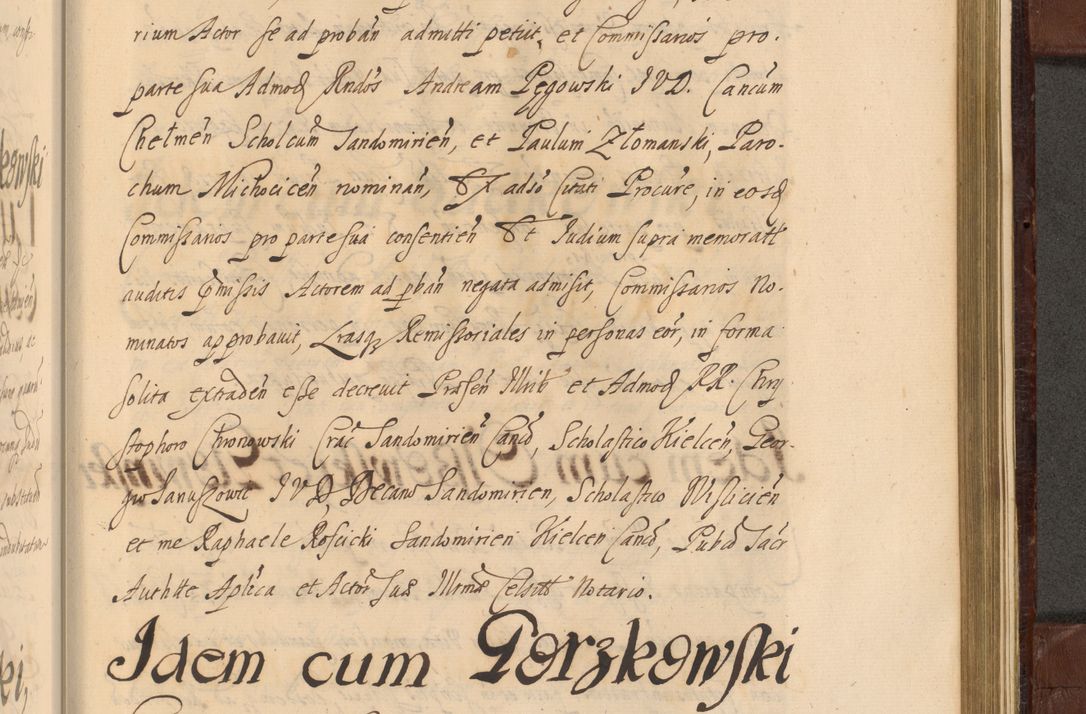 rium Actor se ad probañ admitti petiit, et Commissarios pro.
parte sua Admod Rndos Andream Pęgowski IVD. Cancum
Chełmeñ Scholcum Sandomirieñ, et Paulum Złomanski, Paro-
chum Michociceñ nominañ, Et adso Citati Procure, in eosd
Commissarios pro parte sua consentieñ Et Iudium supra memoratt
auditis pmissis Actorem ad pbañ negata admisit, Commissarios No-
minatos approbavit, Lrasq Remissoriales in personas eor, in forma
solita extradeñ esse decrevit Præseñ Illrib et Admod RR. Chry
stophoro Chronowski Crac Sandomirieñ Cancō, Scholastico Kielceñ, Geor-
gio Januszowic IVD, Decano Sandomirien, Scholastico Wislicieñ
et me Raphaele Roscicki Sandomirien Kielcen Cancō, Pubco Sacr
Authtte Aplica et Actor sua Illrmæ Celsitt Notario.
Idem cum Gorzkowski